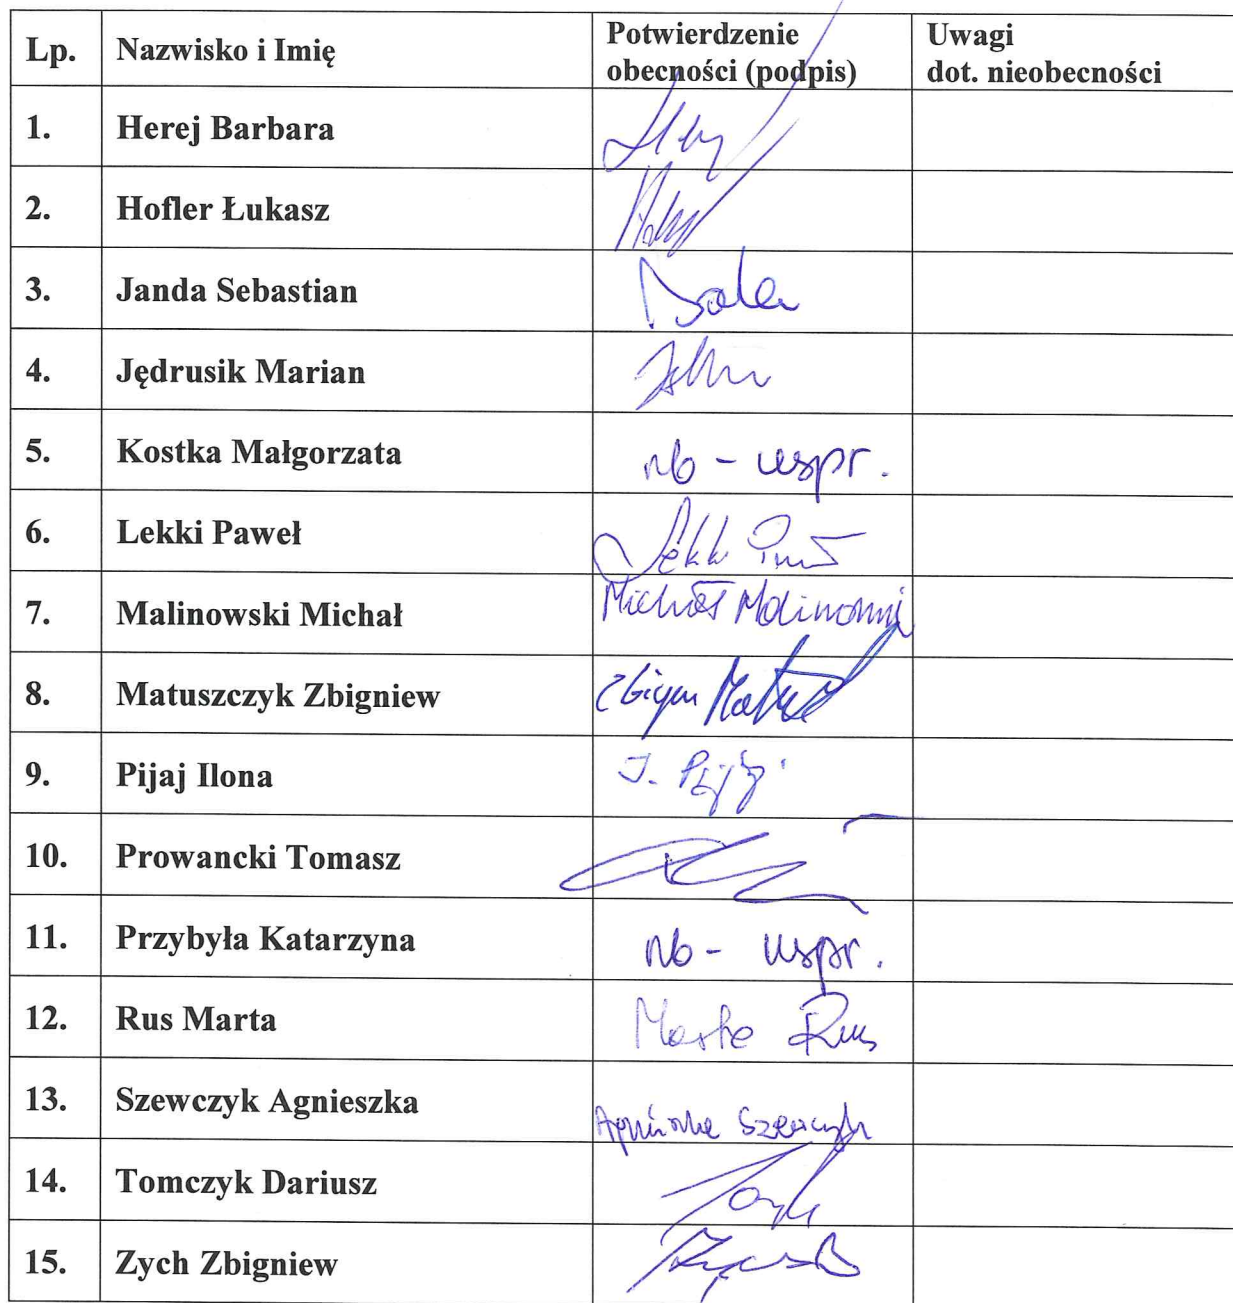 Lp. Nazwisko i Imię Potwierdzenie obecności (podpis) Uwagi dot. nieobecności
1. Herej Barbara
2. Hofler Łukasz
3. Janda Sebastian
4. Jędrusik Marian
5. Kostka Małgorzata nb - uspr.
6. Lekki Paweł
7. Malinowski Michał Michał Malinowski
8. Matuszczyk Zbigniew
9. Pijaj Ilona I. Pijaj
10. Prowancki Tomasz
11. Przybyła Katarzyna nb - uspr.
12. Rus Marta Marta Rus
13. Szewczyk Agnieszka Agnieszka Szewczyk
14. Tomczyk Dariusz
15. Zych Zbigniew